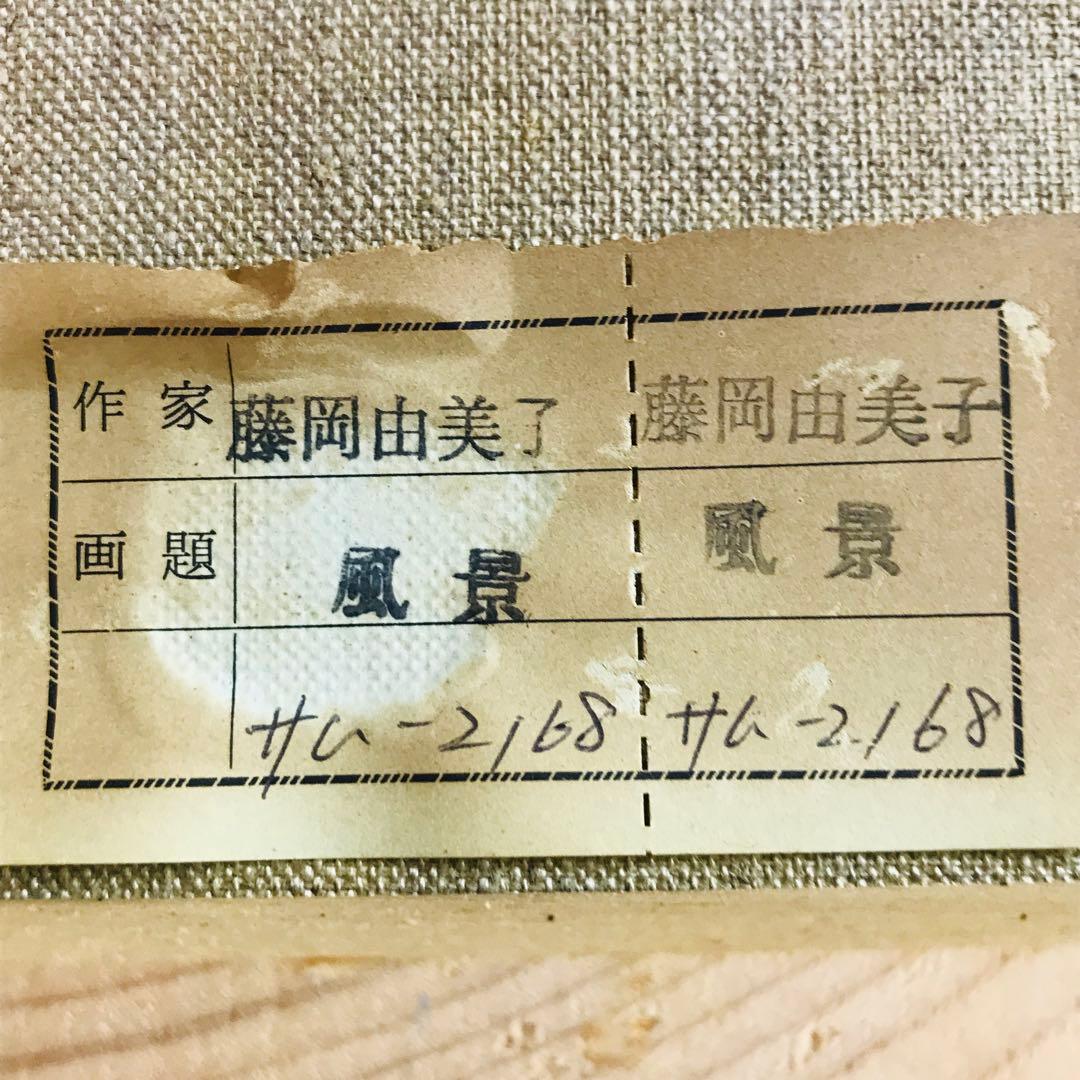 作家 藤岡由美子 藤岡由美子
画題 風景 風景
サムー2168 サムー2168